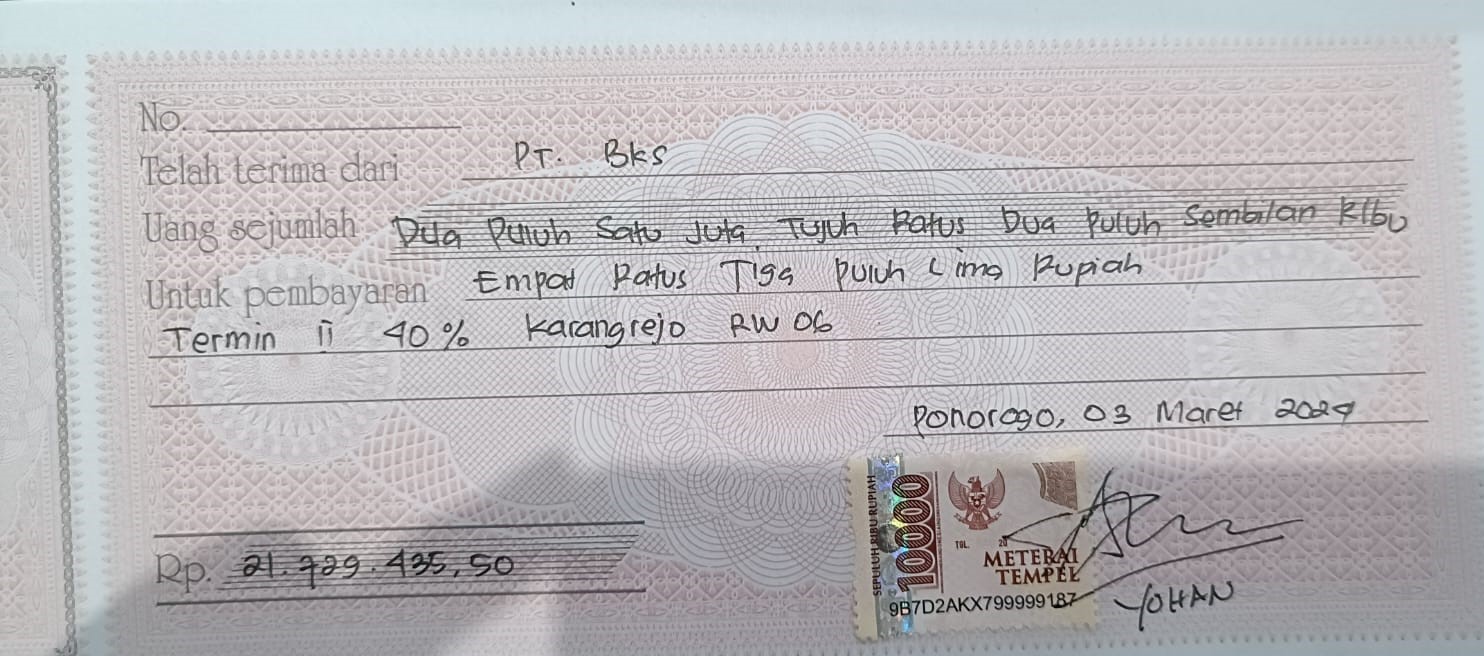 No.
Telah terima dari PT. Bks
Uang sejumlah Dua Puluh Satu Juta Tujuh Ratus Dua Puluh Sembilan Ribu
Empat Ratus Tiga Puluh Lima Rupiah
Untuk pembayaran
Termin II 40% Karangrejo RW 06
Ponorogo, 03 Maret 2024
Rp. 21.729.435,50
SEPULUH RIBU RUPIAH
10000
TGL. 20
METERAI
TEMPEL
9B7D2AKX799999187
YOHAN